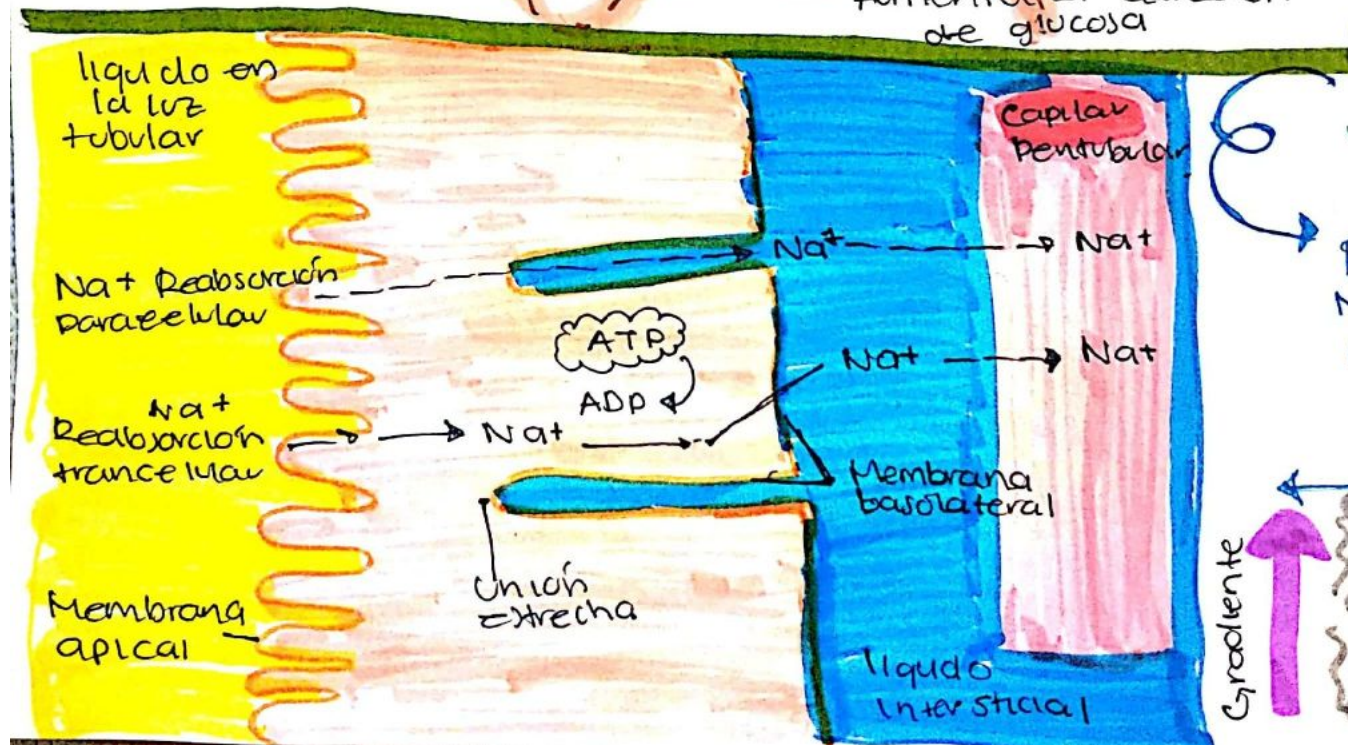 de glucosa
líquido en
la luz
tubular
Capilar
Peritubular
Na+ Reabsorción
paracelular
Na+
Na+
ATP
ADP
Na+
Na+
Na+
Reabsorción
trancelular
Na+
Membrana
basolateral
Unión
Estrecha
Membrana
apical
líquido
intersticial
Gradiente